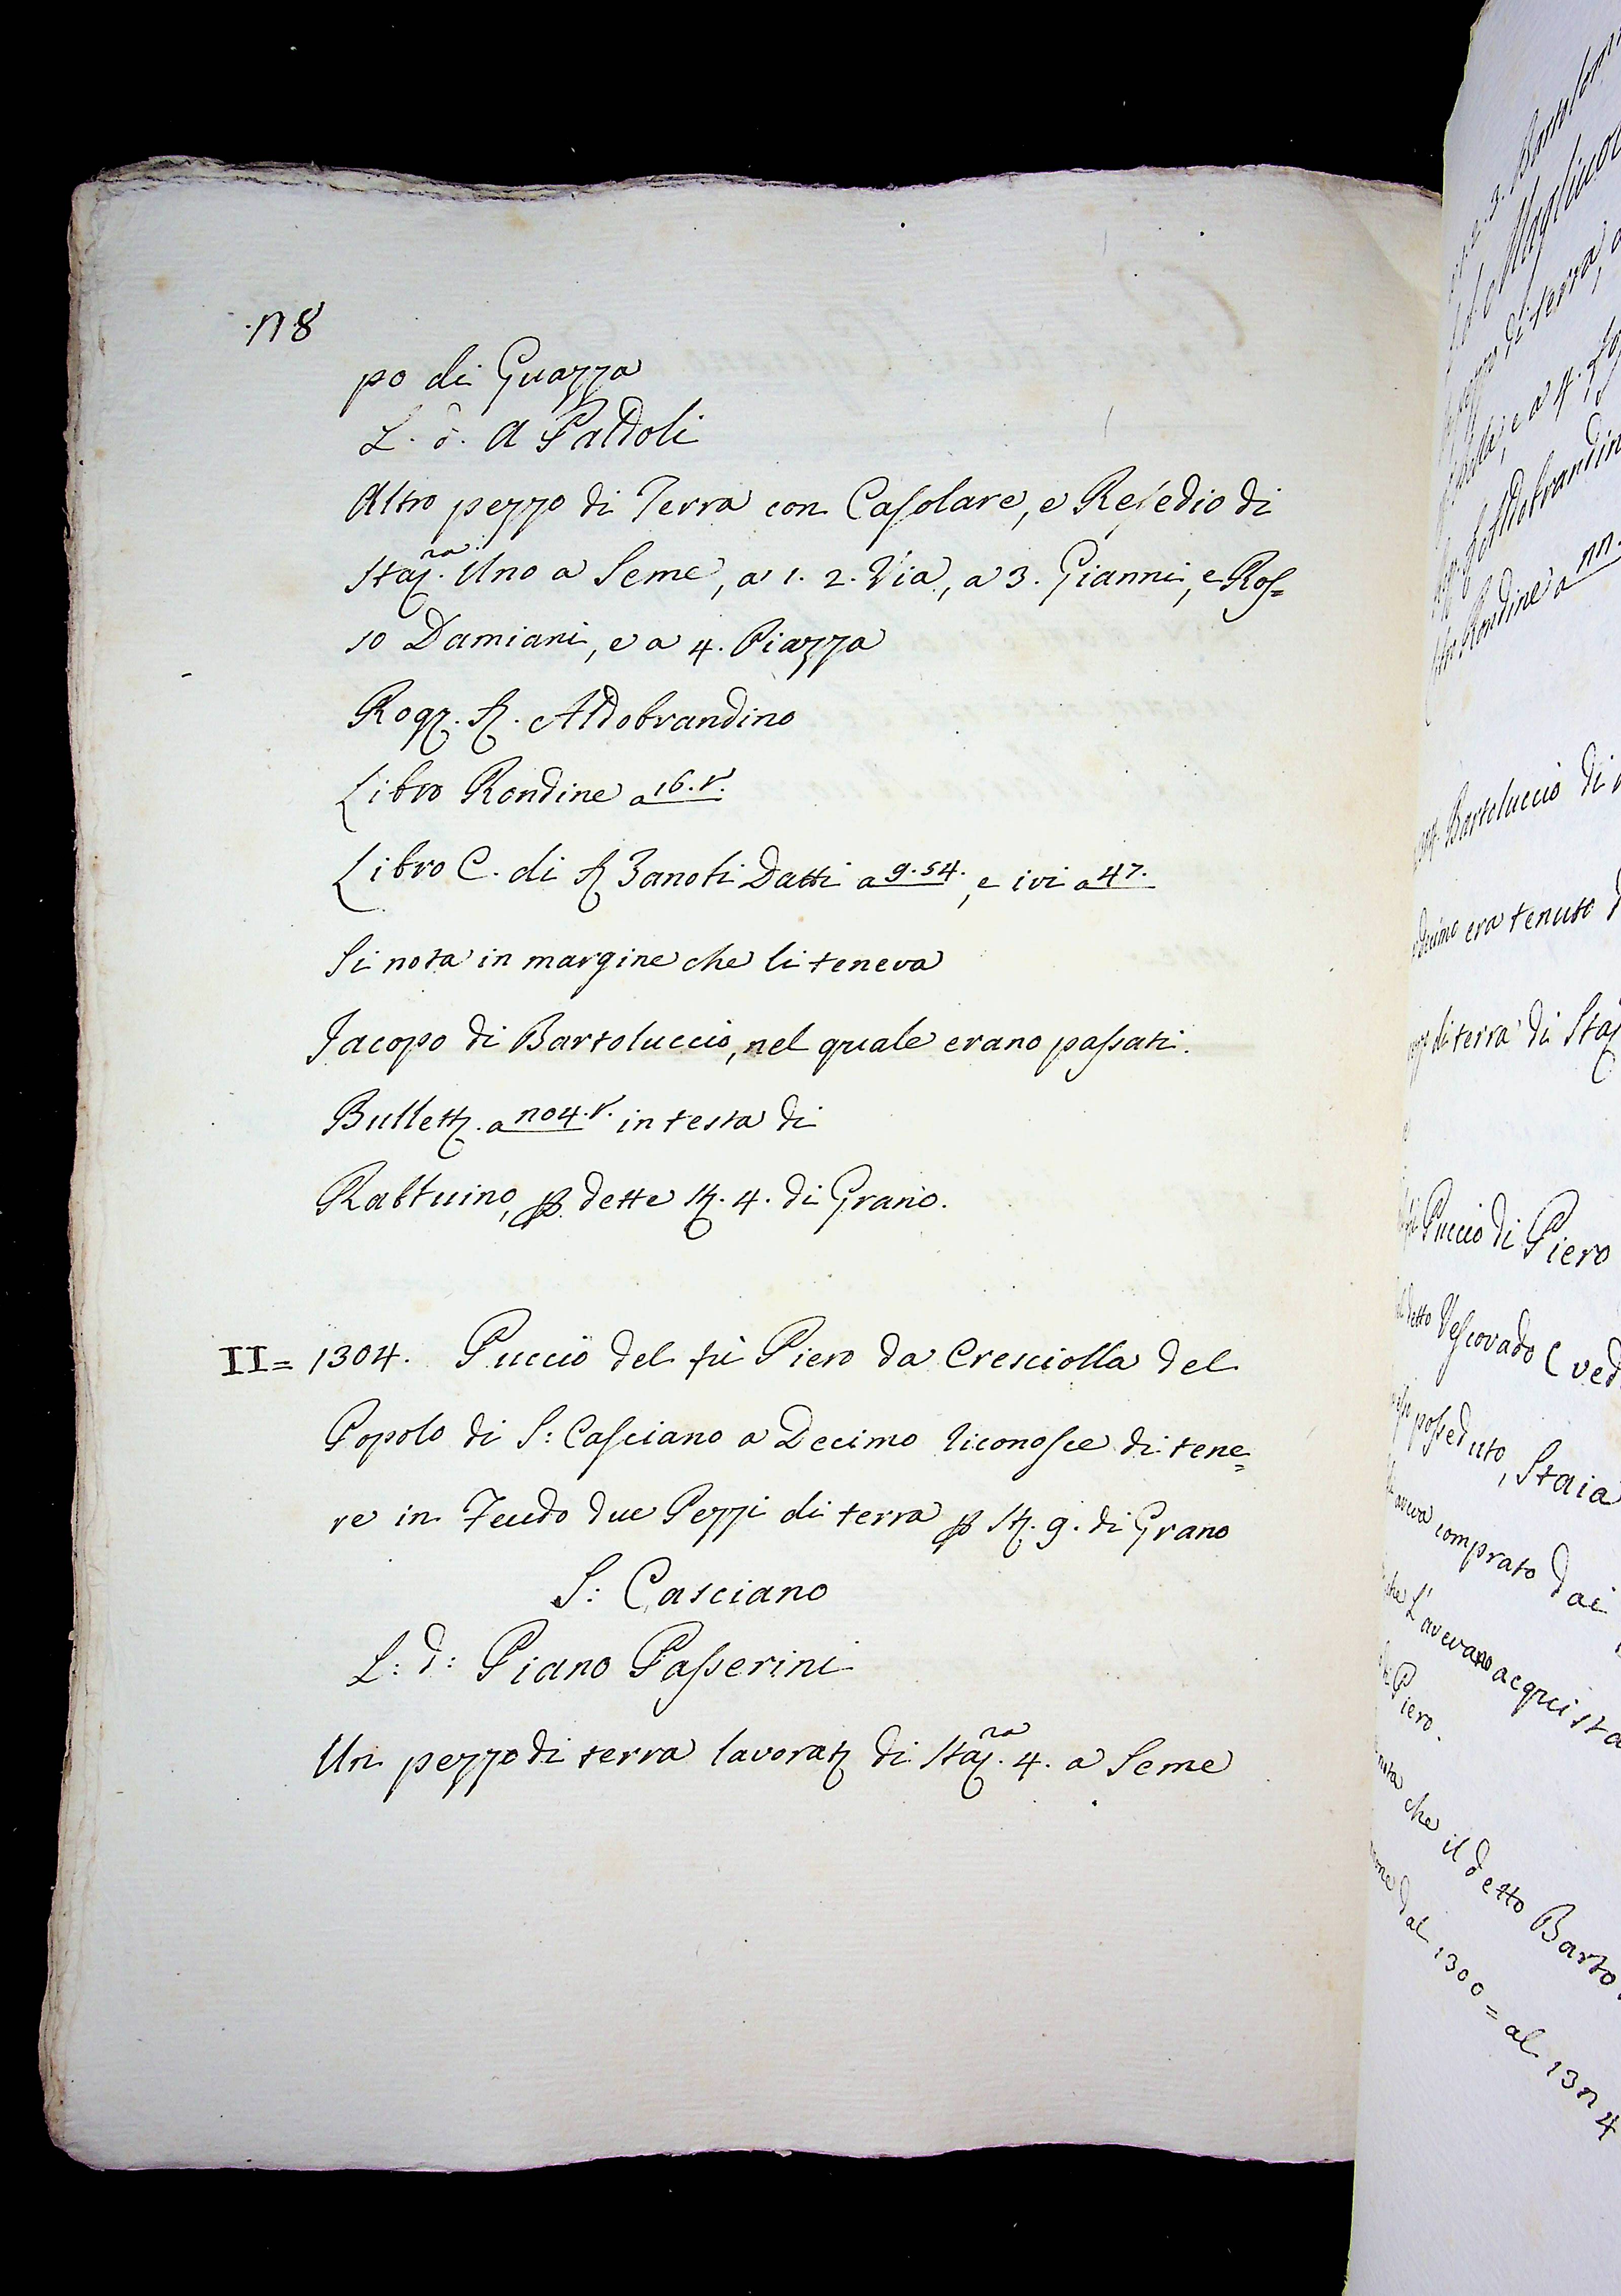 28
po di Guazza
L. d. A Paldoli
Altro pezzo di Terra con Casolare, e Resedio di
Staj.ra Uno a Seme, a 1. 2. Via, a 3. Gianni, e Ros=
so Damiani, e a 4. Piazza
Rog. S. Aldobrandino
Libro Rondine a 16.r.
Libro C. di S. Zanobi Datti a 9.54., e ivi a 47.
Si nota in margine che li teneva
Jacopo di Bartoluccio, nel quale erano passati.
Bullett. a 204.r. in testa di
Rabtuino, p dette St. 4. di Grano.
II= 1304. Puccio del fù Piero da Cresciolla del
Popolo di S: Casciano a Decimo riconosce di tene=
re in Feudo due Pezzi di terra p St. 9. di Grano
S: Casciano
L: d: Piano Passerini
Un pezzo di terra lavorat. di Staj.ra 4. a Seme
di terra,
Aldobrandin
Rondine a
Bartoluccio di
era tenuto
di terra di Staj
Puccio di Piero
detto Vescovado (ved
posseduto, Staia
aveva comprato dai
L'avevano acquista
Piero.
che il detto Barto
dal 1300= al 1324